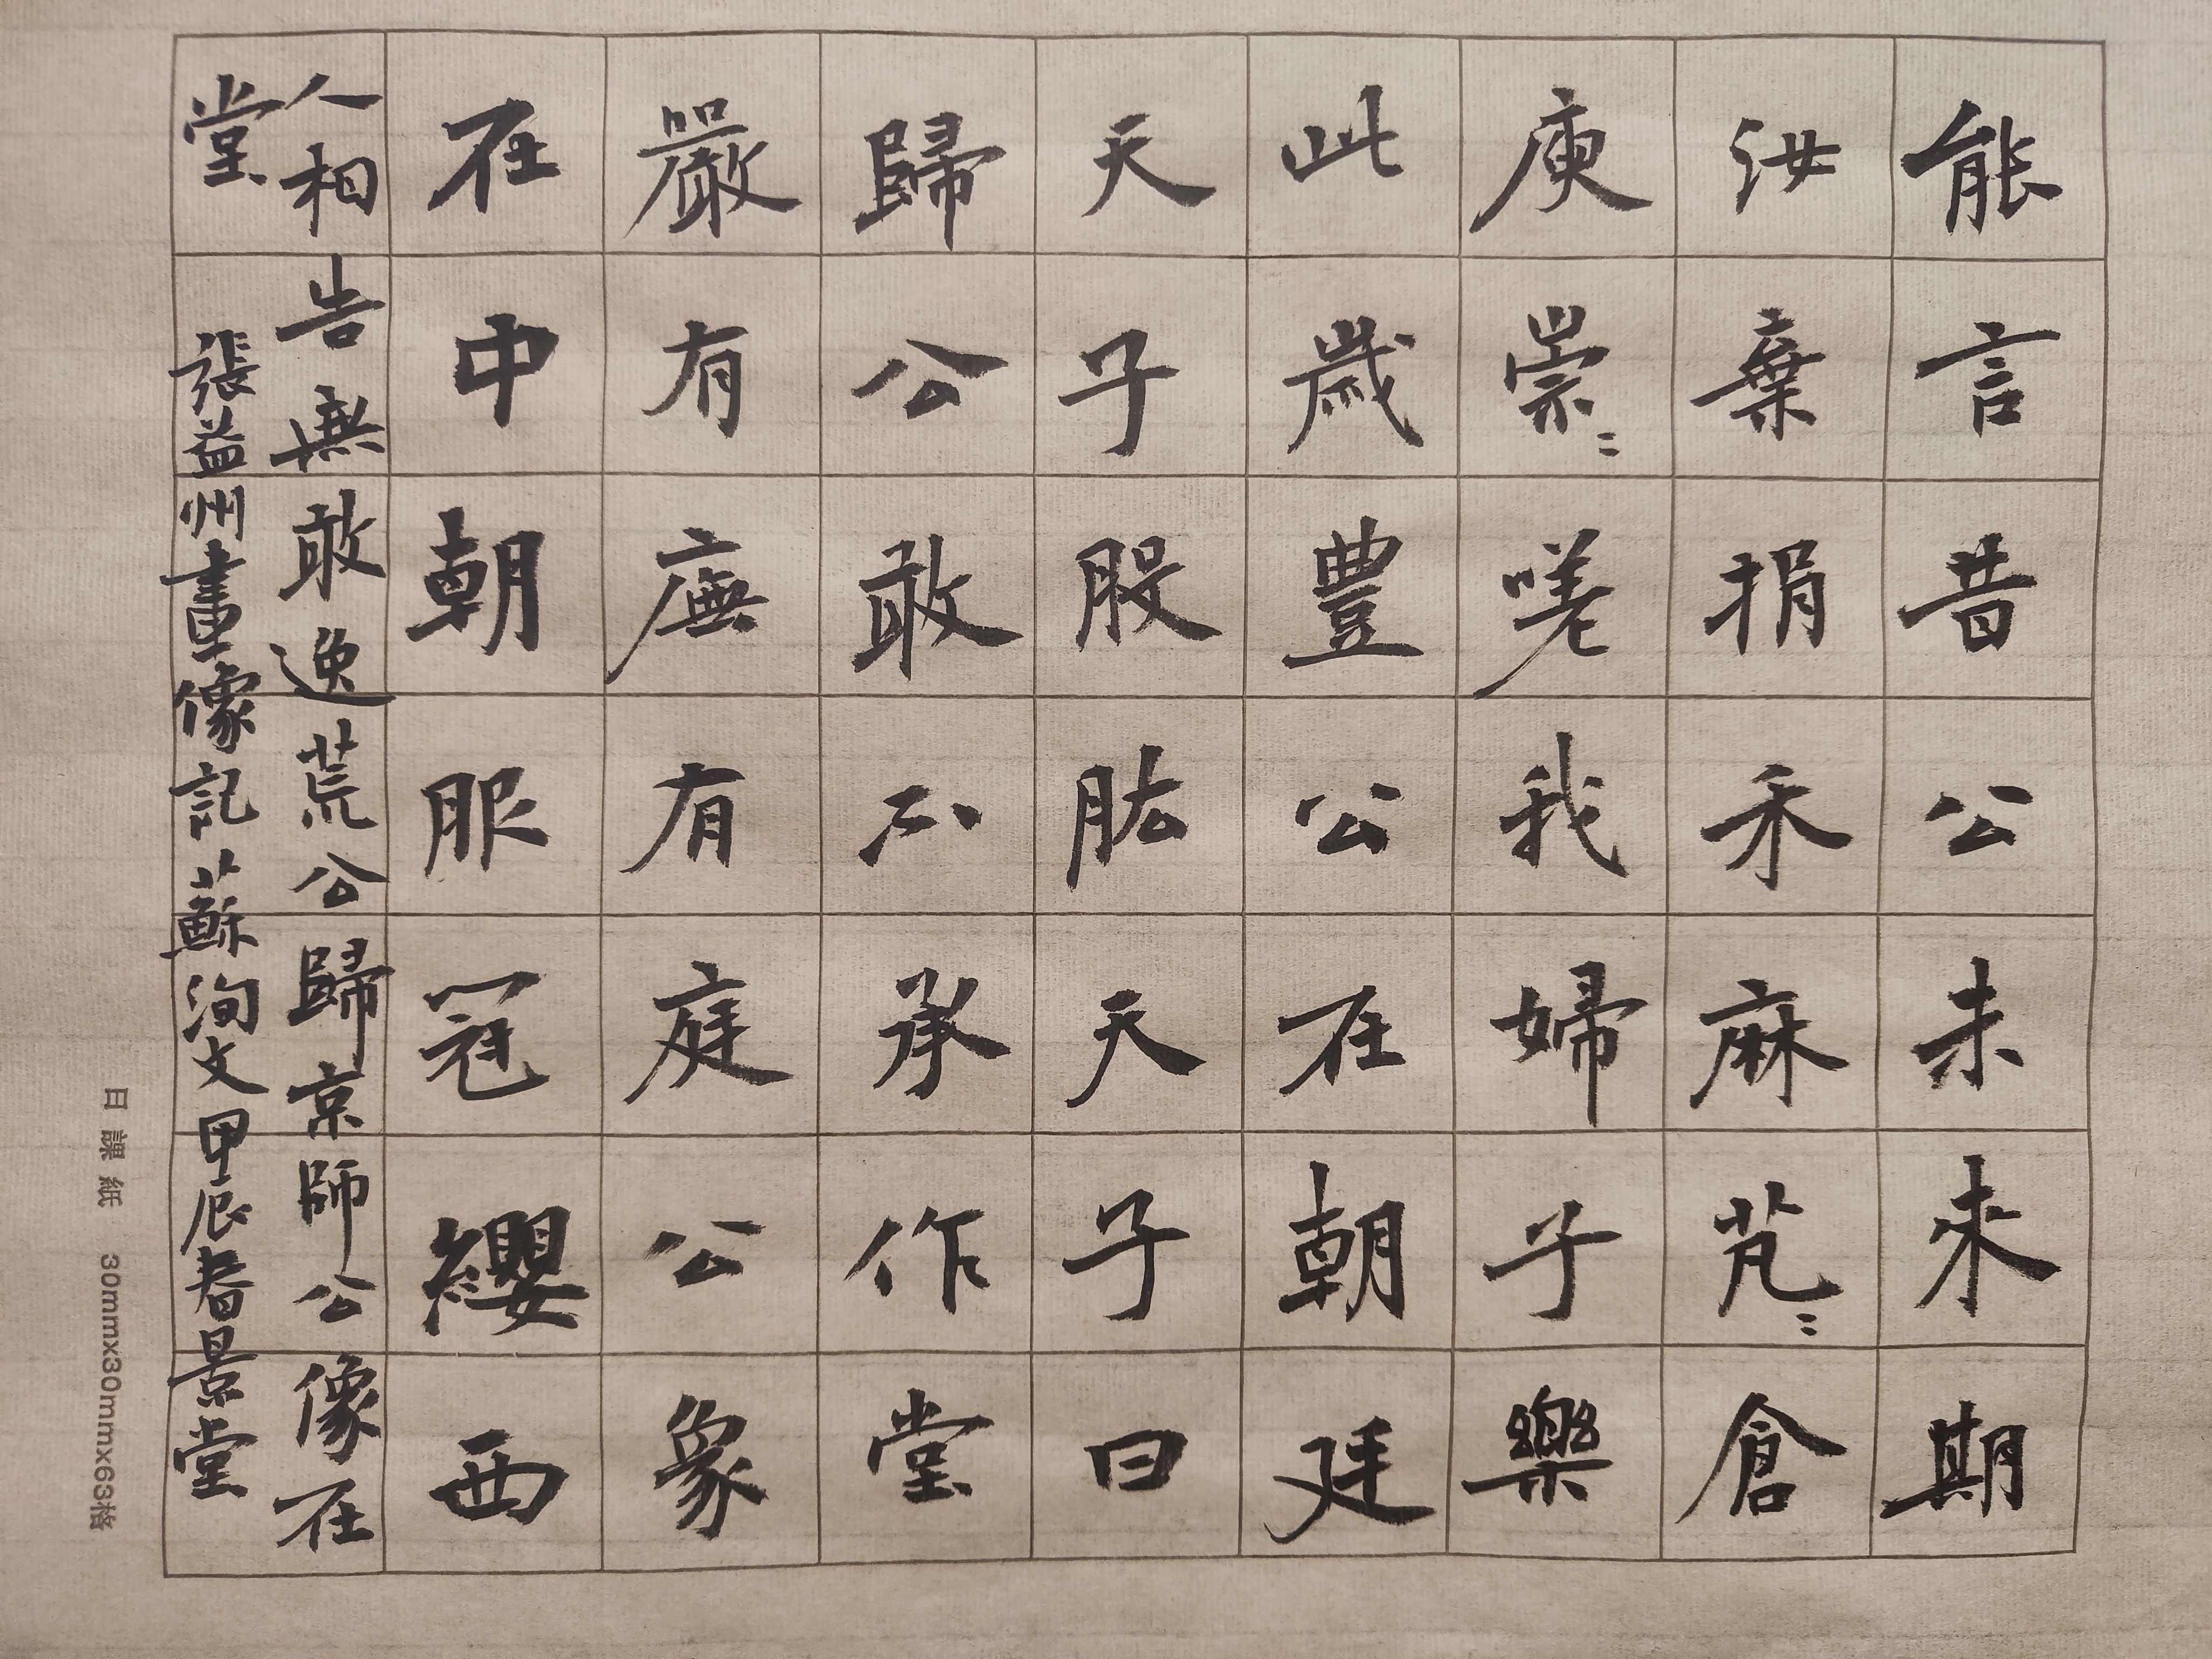 能言昔公未來期
汝棄捐禾麻芃〻倉
庾崇〻嗟我婦子樂
此歲豐公在朝廷
天子股肱天子曰
歸公敢不承作堂
嚴有廡有庭公象
在中朝服冠纓西
人相告無敢逸荒公歸京師公像在
堂
張益州畫像記蘇洵文甲辰春景堂
日課紙 30mmx30mmx63格